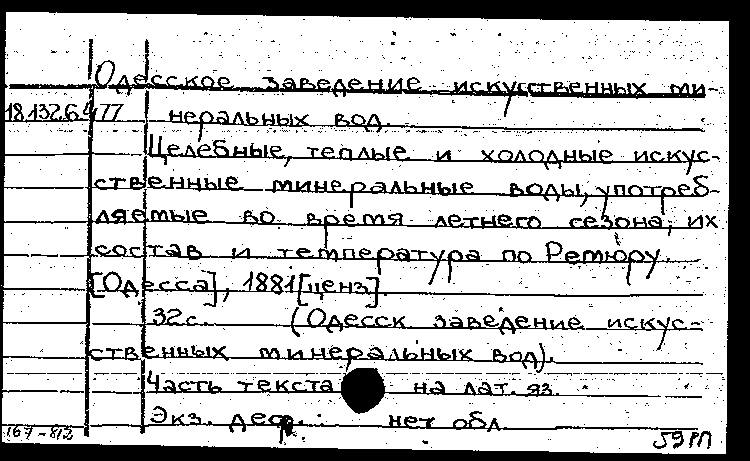 Одесское заведение искусственных ми-
18.132.6.477 неральных вод.
Целебные, теплые и холодные искус-
ственные минеральные воды, употреб-
ляемые во время летнего сезона, их
состав и температура по Ремюру.
[Одесса], 1881 [ценз].
32с. (Одесск заведение искус-
ственных минеральных вод).
Часть текста на лат. яз.
Экз. деф.: нет обл.
167-812